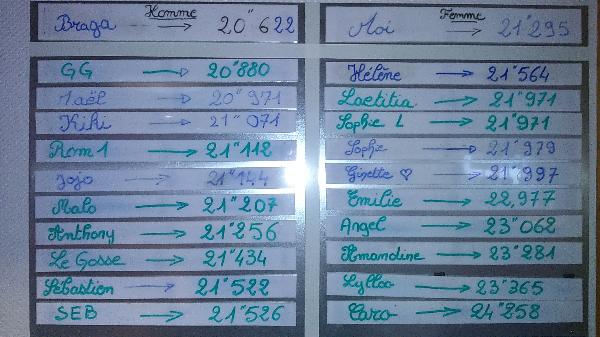 Homme
Braga → 20"622
GG → 20"880
Jaël → 20"971
Kiki → 21"071
Rom1 → 21"112
Jojo → 21"144
Malo → 21"207
Anthony → 21"256
Le Gosse → 21"434
Sébastien → 21"522
SEB → 21"526
Femme
Moi → 21"295
Hélène → 21"564
Laetitia → 21"971
Sophie L → 21"971
Sophie → 21"979
Ginette ♡ → 21"997
Emilie → 22,977
Angel → 23"062
Amandine → 23"281
Lylloo → 23"365
Caro → 24"258